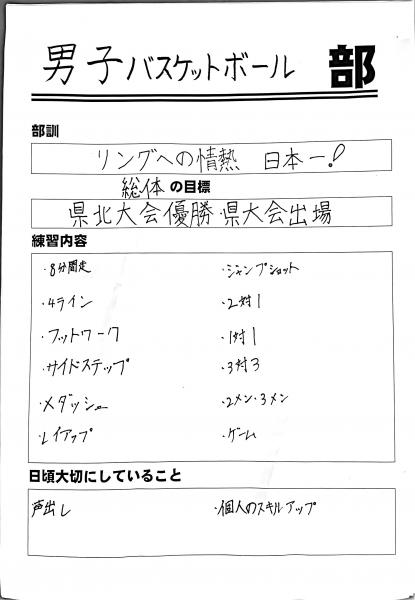 男子バスケットボール 部
部訓
リングへの情熱 日本一!
総体 の目標
県北大会優勝・県大会出場
練習内容
・8分間走
・ジャンプショット
・4ライン
・2対1
・フットワーク
・1対1
・サイドステップ
・3対3
・メダッシュ
・2メン・3メン
・レイアップ
・ゲーム
日頃大切にしていること
声出し
・個人のスキルアップ